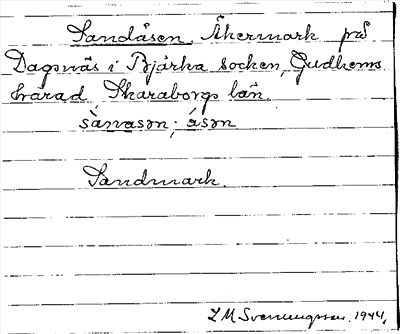 Sandåsen. Åkermark på
Dagsnäs i Bjärka socken, Gudhems
härad, Skaraborgs län.
sànasən; åsən
Sandmark.
L M Svenungsson. 1944.